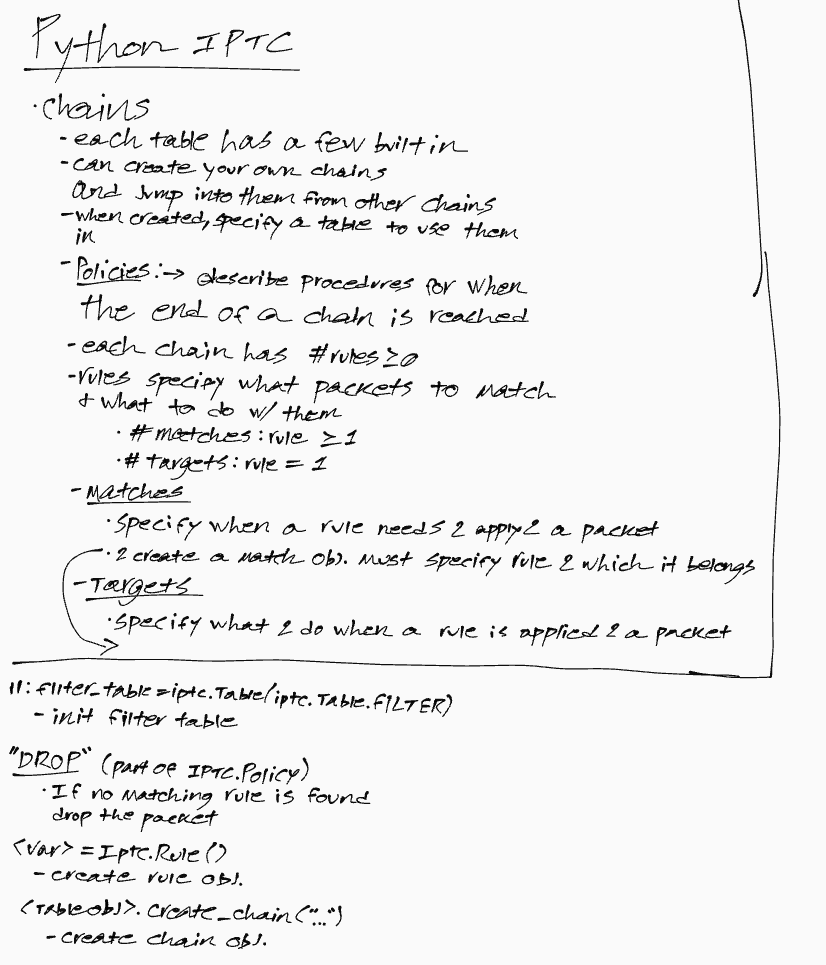 Python IPTC
·chains
-each table has a few built in
-can create your own chains
and jump into them from other chains
-when created, specify a table to use them
in
-Policies:→ describe procedures for when
the end of a chain is reached
-each chain has #rules≥0
-rules specify what packets to match
& what to do w/ them
·#matches:rule ≥1
·# targets:rule = 1
-Matches
·Specify when a rule needs 2 apply 2 a packet
·2 create a match obj. must specify rule 2 which it belongs
-Targets
·specify what 2 do when a rule is applied 2 a packet
11: filter_table=iptc.Table(iptc.Table.FILTER)
-init filter table
"DROP" (part of IPTC.Policy)
·If no matching rule is found
drop the packet
<var> = Iptc.Rule()
-create rule obj.
<Tableobj>.create_chain("...")
-create chain obj.